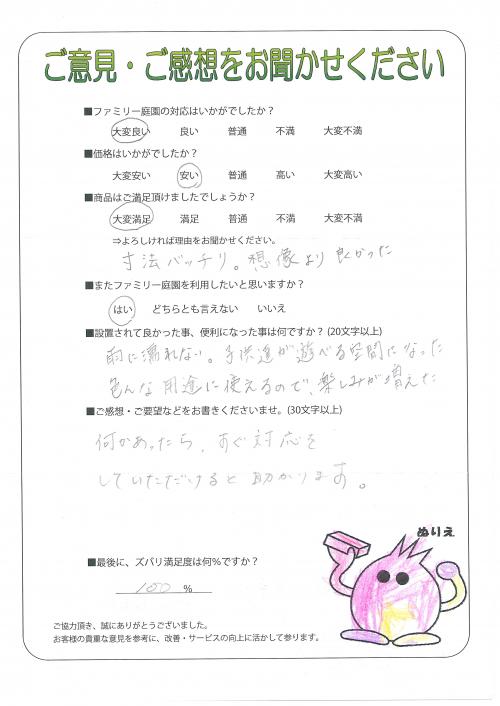 ご意見・ご感想をお聞かせください
■ファミリー庭園の対応はいかがでしたか？
大変良い 良い 普通 不満 大変不満
■価格はいかがでしたか？
大変安い 安い 普通 高い 大変高い
■商品はご満足頂けましたでしょうか？
大変満足 満足 普通 不満 大変不満
⇒よろしければ理由をお聞かせください。
寸法バッチリ。想像より良くかった
■またファミリー庭園を利用したいと思いますか？
はい どちらとも言えない いいえ
■設置されて良かった事、便利になった事は何ですか？(20文字以上)
雨に濡れない。子供達が遊べる空間になった
色んな用途に使えるので、楽しみが増えた
■ご感想・ご要望などをお書きくださいませ。(30文字以上)
何かあったら、すぐ対応を
していただけると助かります。
ぬりえ
■最後に、ズバリ満足度は何%ですか？
100 %
ご協力頂き、誠にありがとうございました。
お客様の貴重な意見を参考に、改善・サービスの向上に活かして参ります。